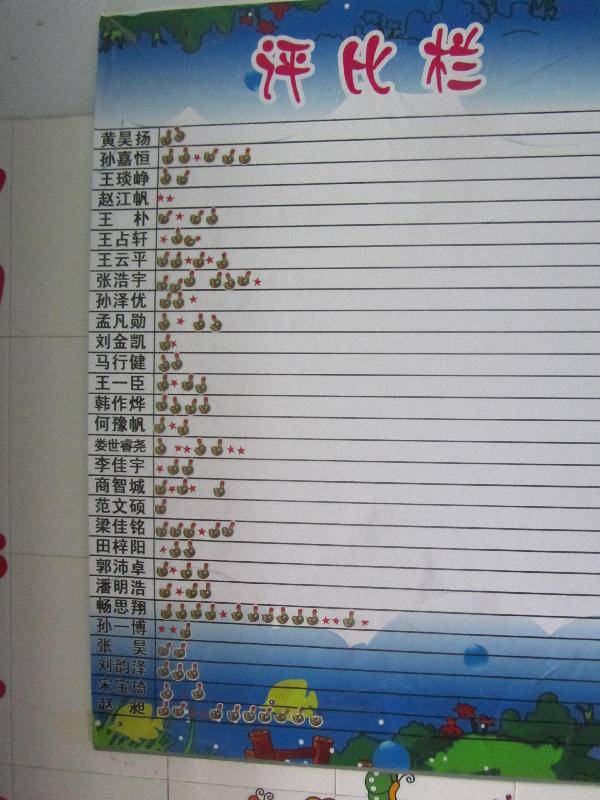 评比栏
黄昊扬
孙嘉恒
王琰峥
赵江帆
王 朴
王占轩
王云平
张浩宇
孙泽优
孟凡勋
刘金凯
马行健
王一臣
韩作烨
何豫帆
娄世睿尧
李佳宇
商智城
范文硕
梁佳铭
田梓阳
郭沛卓
潘明浩
畅思翔
孙一博
张 昊
刘韵泽
宋宝琦
赵 昶